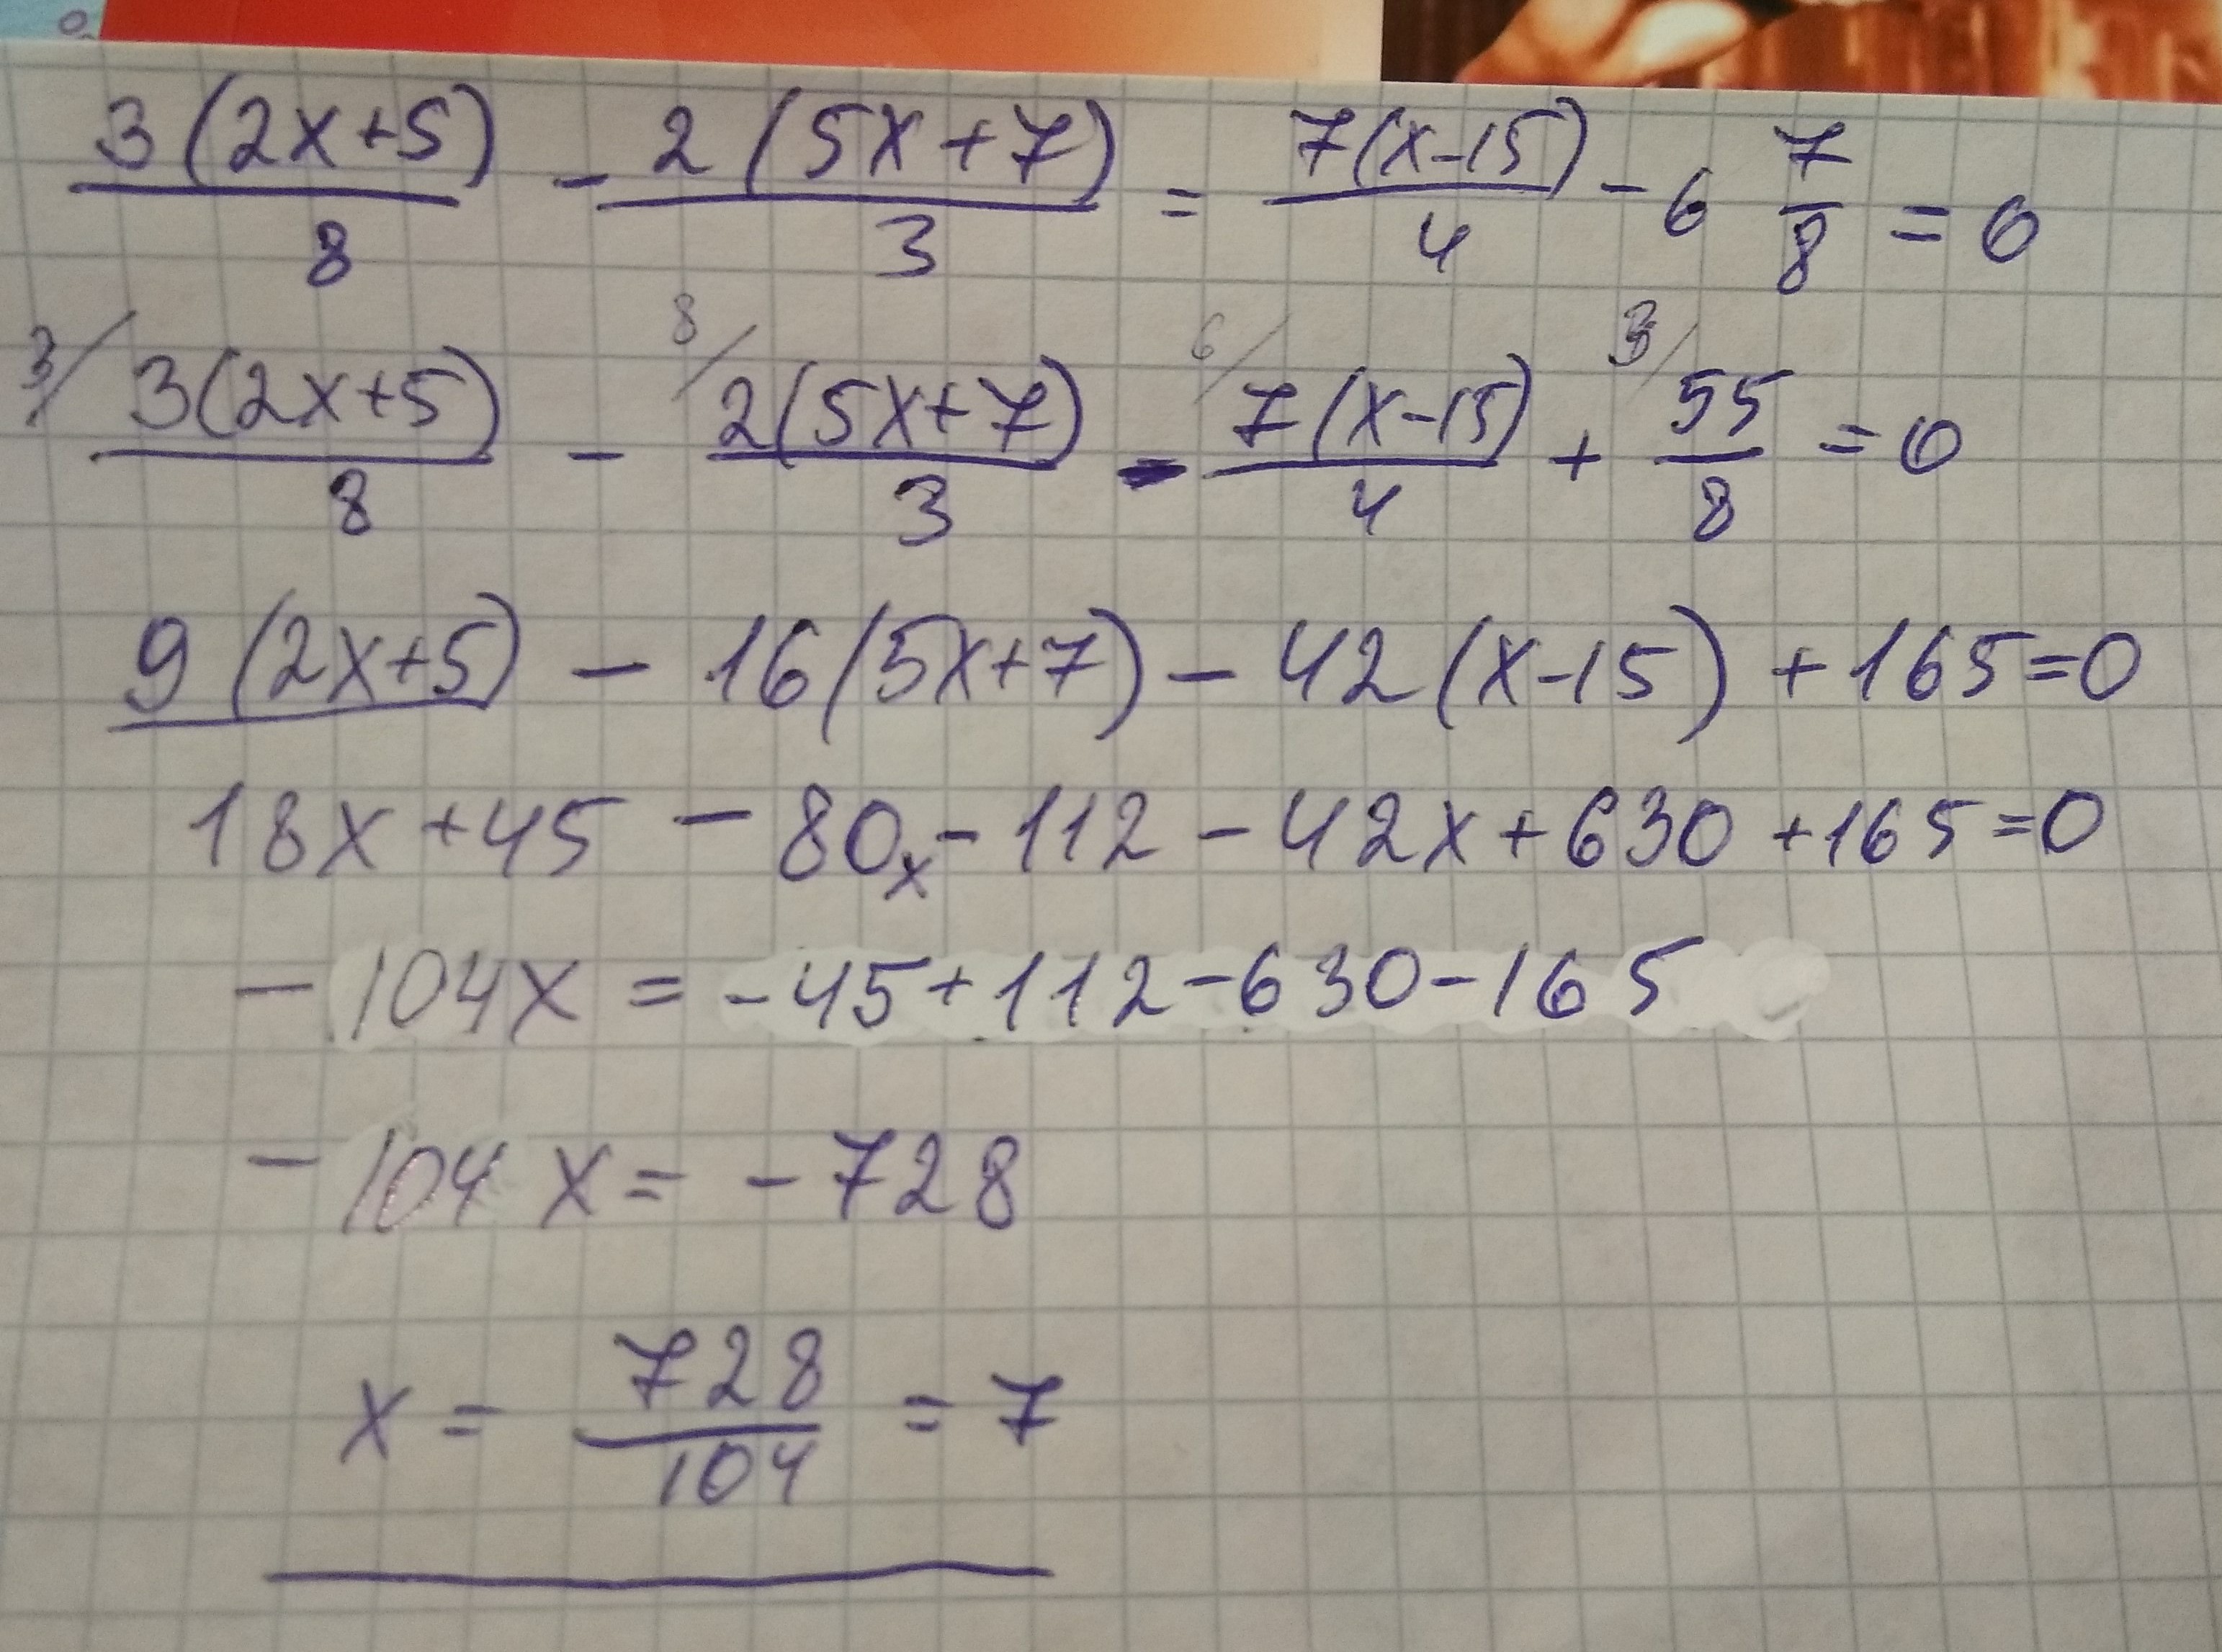 3(2x+5)/8 - 2(5x+7)/3 = 7(x-15)/4 - 6 7/8 = 0
3/ 3(2x+5)/8 - 8/ 2(5x+7)/3 - 6/ 7(x-15)/4 + 3/ 55/8 = 0
9(2x+5) - 16(5x+7) - 42(x-15) + 165 = 0
18x + 45 - 80x - 112 - 42x + 630 + 165 = 0
- 104x = - 45 + 112 - 630 - 165
- 104x = - 728
x = 728/104 = 7